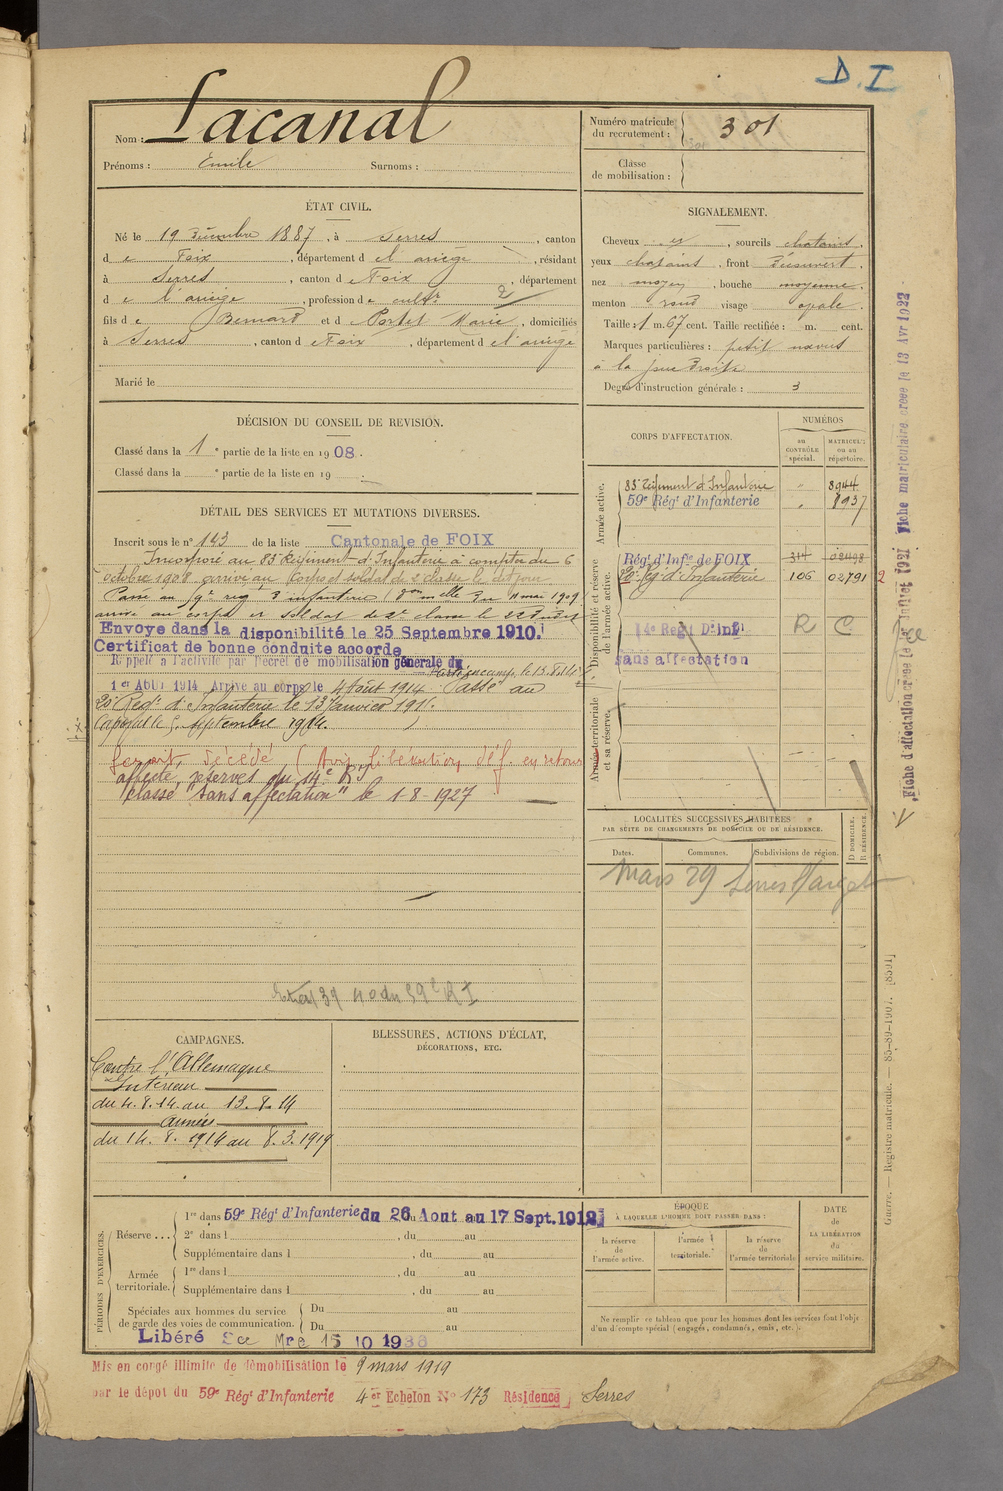 D. I
Nom : Lacanal
Prénoms : Emile Surnoms :
Numéro matricule du recrutement : 301
Classe de mobilisation :
ÉTAT CIVIL.
Né le 19 Décembre 1887, à Serres, canton
de Foix, département de l'ariège, résidant
à Serres, canton de Foix, département
de l'ariège, profession de cultr 2
fils de Bernard et de Portet Marie, domiciliés
à Serres, canton de Foix, département de l'ariège
Marié le
SIGNALEMENT.
Cheveux et, sourcils chatains,
yeux chatains, front Découvert,
nez moyen, bouche moyenne,
menton rond visage ovale.
Taille : 1 m. 67 cent. Taille rectifiée : m. cent.
Marques particulières : petit nævus
à la joue droite
Degré d'instruction générale : 3
DÉCISION DU CONSEIL DE REVISION.
Classé dans la 1e partie de la liste en 1908.
Classé dans la e partie de la liste en 19
CORPS D'AFFECTATION.
NUMÉROS
au CONTRÔLE spécial.
MATRICULE ou au répertoire.
Armée active.
83e Régiment d'Infanterie " 8944
59e Régt d'Infanterie " 1937
Disponibilité et réserve de l'armée active.
Régt d'Infie de FOIX 314
20e Rgt d'Infanterie 106 02791 2
14e Regt D'inf R C
sans affectation
Armée territoriale et sa réserve.
DÉTAIL DES SERVICES ET MUTATIONS DIVERSES.
Inscrit sous le n° 143 de la liste Cantonale de FOIX
Incorporé au 83e Régiment d'Infanterie à compter du 6
octobre 1908 arrivé au Corps et soldat de 2e classe le dit jour
Passé au 59e reg d'infanterie 11 mai 1909
arrivé au corps et soldat de 2e classe le
Envoyé dans la disponibilité le 25 Septembre 1910.
Certificat de bonne conduite accordé
Rappelé à l'activité par Décret de mobilisation générale du
1er Août 1914 Arrivé au corps le 4 Août 1914 Passé au
20e Regt d'Infanterie le 13 Janvier 191
Caporal le 5 septembre 1914.
serait Décédé (Avis libération déf. en retour)
affecté réserves du 14e R
classé "sans affectation" le 1-8-1927
LOCALITÉS SUCCESSIVES HABITÉES
PAR SUITE DE CHANGEMENTS DE DOMICILE OU DE RÉSIDENCE.
Dates. Communes. Subdivisions de région. D DOMICILE. R RÉSIDENCE.
Mars 29 Serres s/arget
40 du 59e R I
CAMPAGNES.
Contre l'Allemagne
Intérieur
du 4.8.14 au 13.8.14
Armées
du 14.8.1914 au 8.3.1919
BLESSURES, ACTIONS D'ÉCLAT,
DÉCORATIONS, ETC.
PÉRIODES D'EXERCICES.
Réserve...
1re dans 59e Régt d'Infanterie du 26 Aout au 17 Sept. 1912
2e dans l , du au
Supplémentaire dans l , du au
Armée territoriale.
1re dans l , du au
Supplémentaire dans l , du au
Spéciales aux hommes du service de garde des voies de communication.
Du au
Du au
Libéré 15 10 1936
ÉPOQUE
À LAQUELLE L'HOMME DOIT PASSER DANS :
la réserve de l'armée active.
l'armée territoriale.
la réserve de l'armée territoriale
DATE DE LA LIBÉRATION du service militaire.
Ne remplir ce tableau que pour les hommes dont les services font l'objet
d'un décompte spécial (engagés, condamnés, omis, etc.).
Mis en congé illimité de démobilisation le 9 mars 1919
par le dépot du 59e Régt d'Infanterie 4er Echelon N° 173 Résidence Serres
Fiche matriculaire créée le 13 Avr 1922
Fiche d'affectation créée le Juillet 1921
Guerre. — Registre matricule. — 85-89-1907. [8391]